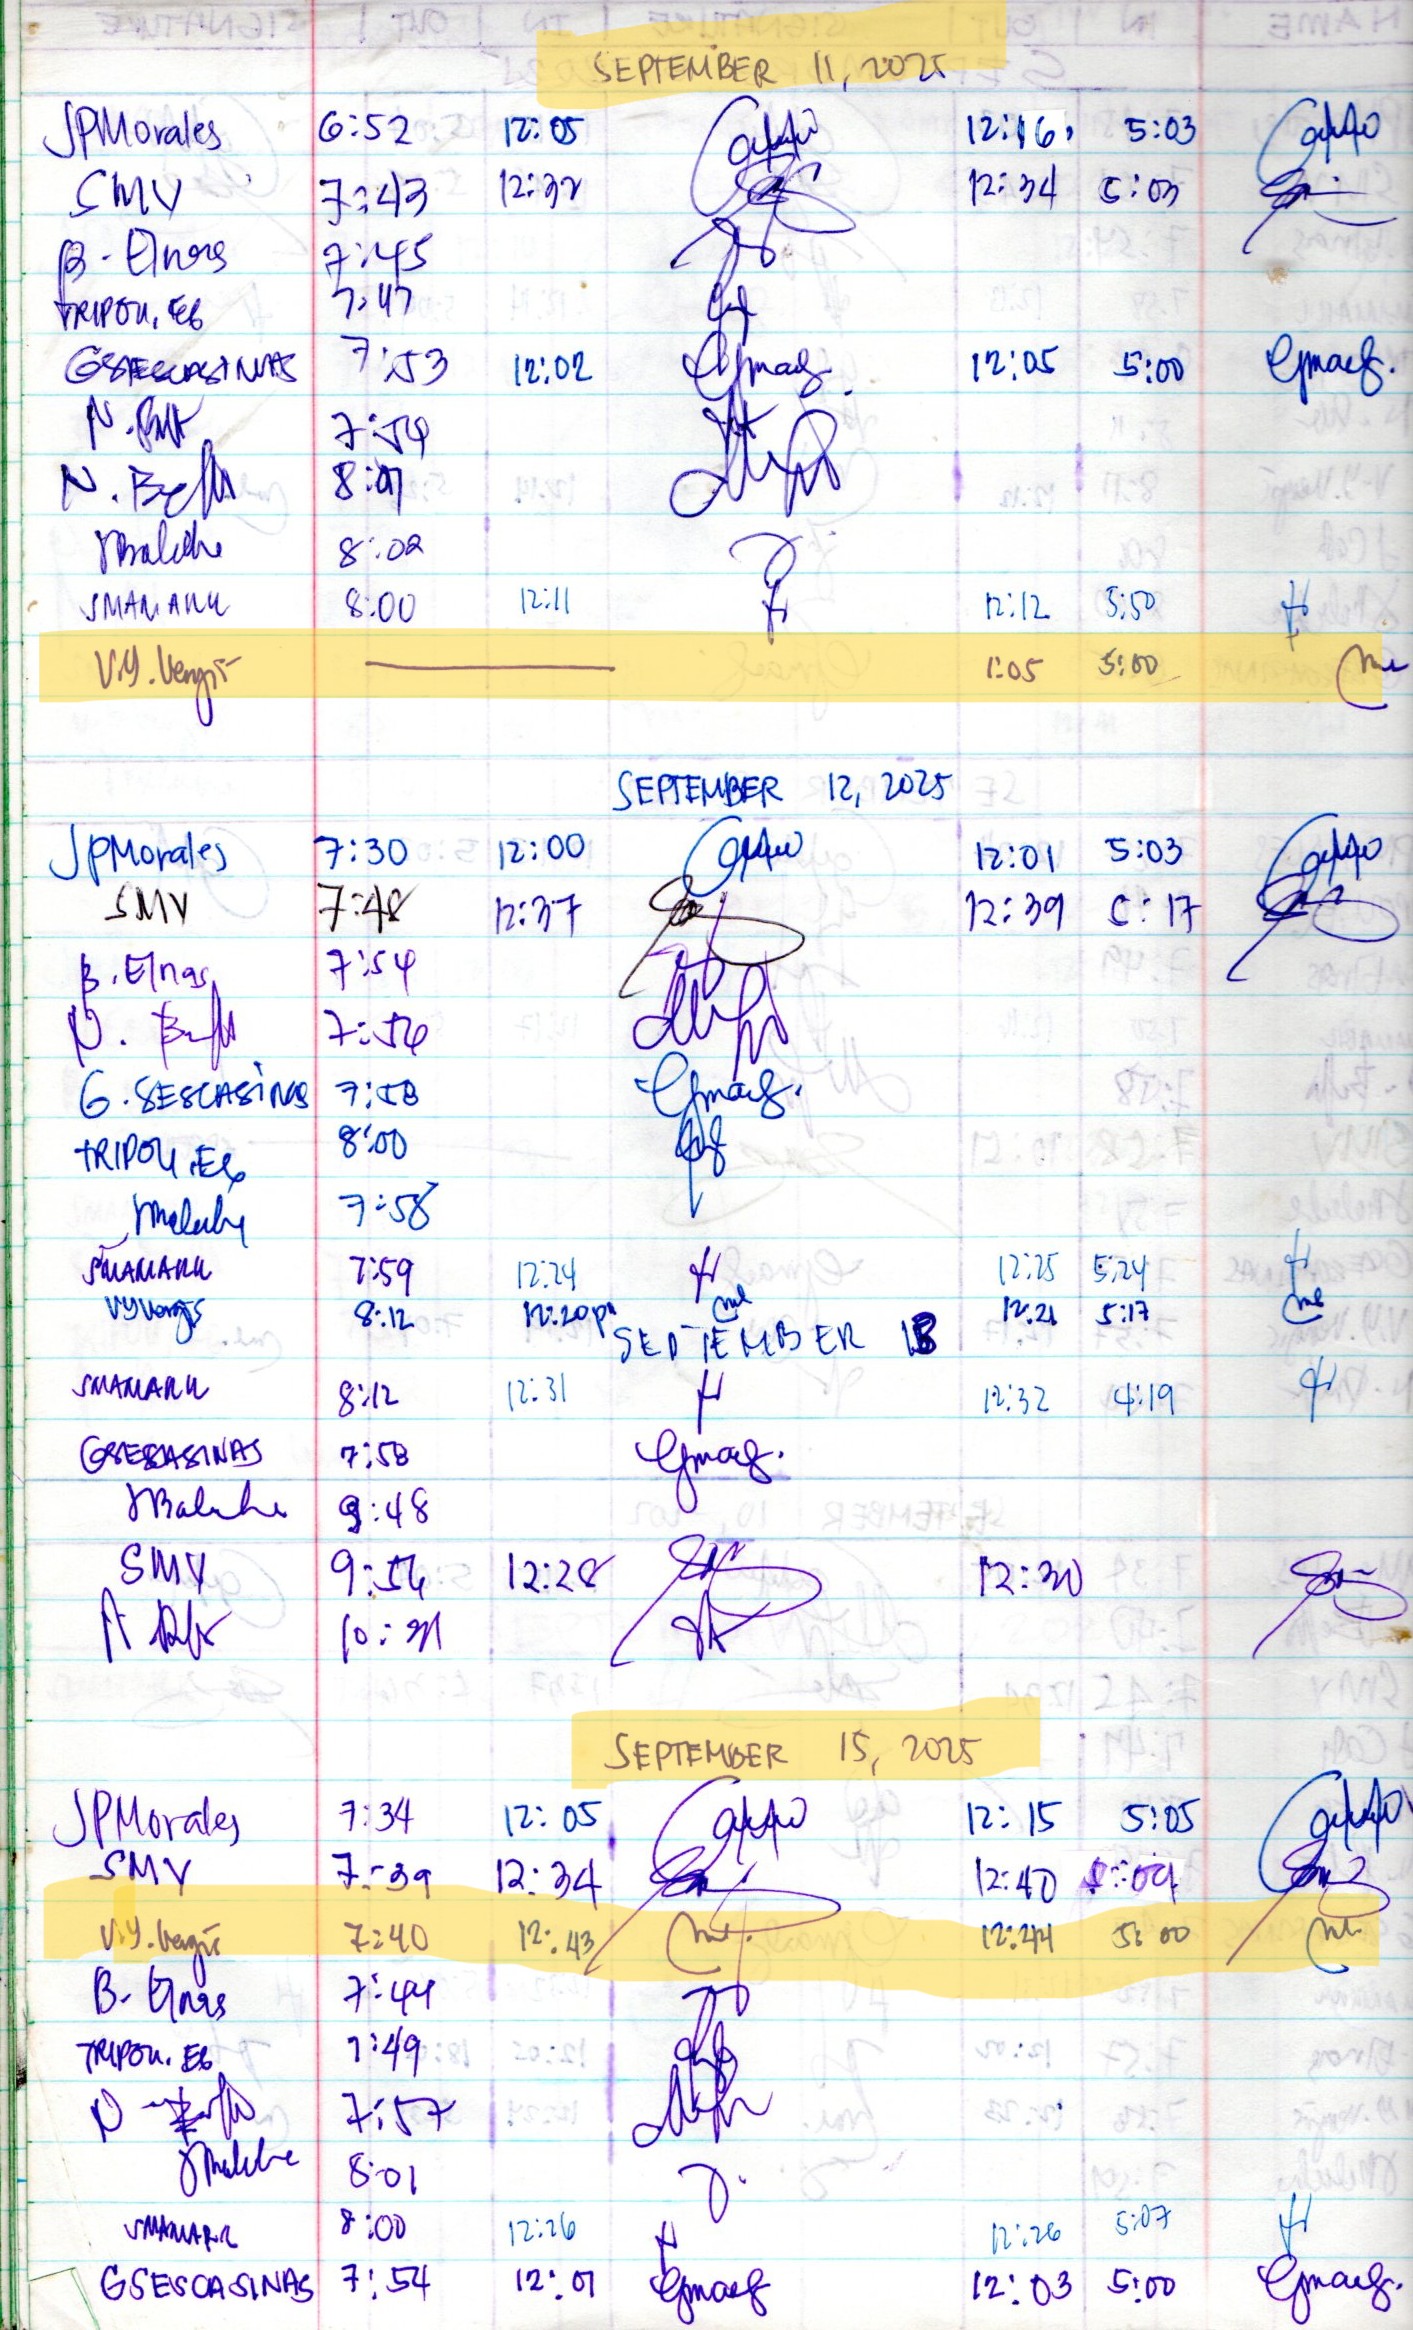 SEPTEMBER 11, 2025
JPMorales 6:52 12:05 12:16 5:03
SMV 7:43 12:32 12:34 5:03
B. Elnas 7:45
TRIPOLI, EG 7:47
GSESCASINAS 7:53 12:02 Gmaeg. 12:05 5:00 Gmaeg.
N. 7:54
N. 8:01
8:02
SMAMARIL 8:00 12:11 12:12 5:50
V.Y. Vergis 1:05 5:00
SEPTEMBER 12, 2025
JPMorales 7:30 12:00 12:01 5:03
SMV 7:48 12:37 12:39 5:17
B. Elnas 7:54
N. 7:56
G. SESCASINAS 7:58 Gmaeg.
TRIPOLI, EG 8:00
7:58
SMAMARIL 7:59 12:24 12:25 5:24
VYVergis 8:12 12:20pm 12:21 5:17
SEPTEMBER 13
SMAMARIL 8:12 12:31 12:32 4:19
GSESCASINAS 7:58 Gmaeg.
9:48
SMV 9:56 12:28 12:30
10:21
SEPTEMBER 15, 2025
JPMorales 7:34 12:05 12:15 5:05
SMV 7:39 12:34 12:40 5:09
V.Y. Vergis 7:40 12:43 12:44 5:00
B. Elnas 7:44
TRIPOLI, EG 7:49
N. 7:57
8:01
SMAMARIL 8:00 12:26 12:26 5:07
GSESCASINAS 7:54 12:01 Gmaeg 12:03 5:00 Gmaeg.